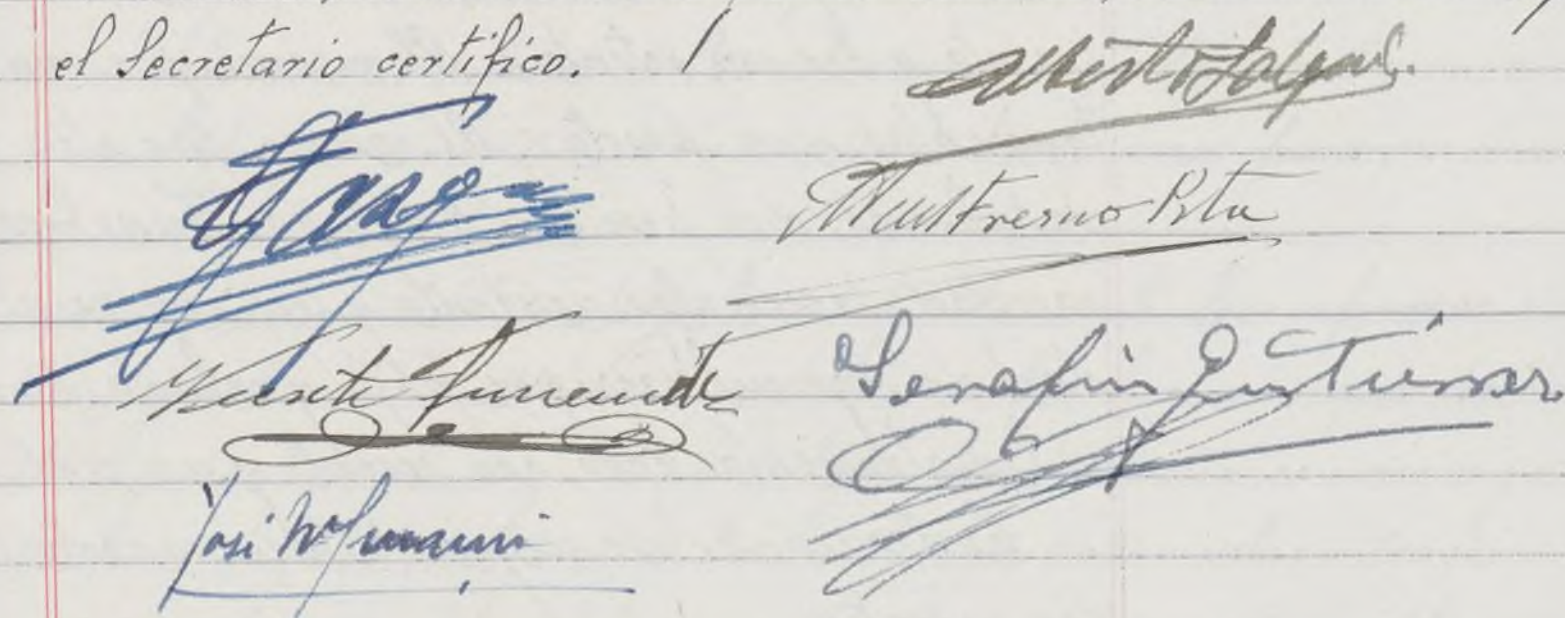 el Secretario certifico.
Alberto Salgado.
Fresno Pita
Vicente
Serafin Gutiérrez
José Mª